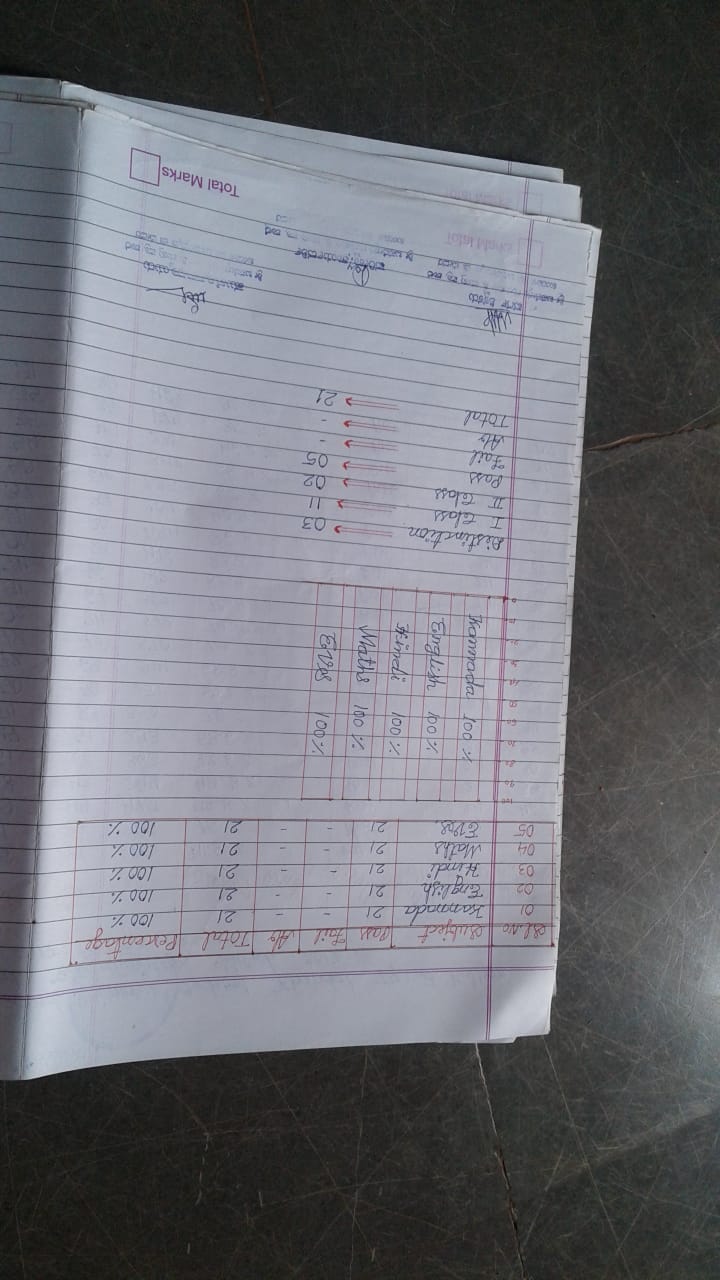 Sl.No Subject Pass Fail Ab Total Percentage
01 Kannada 21 - - 21 100 %
02 English 21 - - 21 100 %
03 Hindi 21 - - 21 100 %
04 Maths 21 - - 21 100 %
05 EVS. 21 - - 21 100 %
100
90
80
70
Kannada 100 %
English 100 %
Hindi 100 %
Maths 100 %
EVS 100 %
0
Distinction → 03
I Class → 11
II Class → 02
Pass → 05
Fail → -
Ab → -
Total → 21
Total Marks